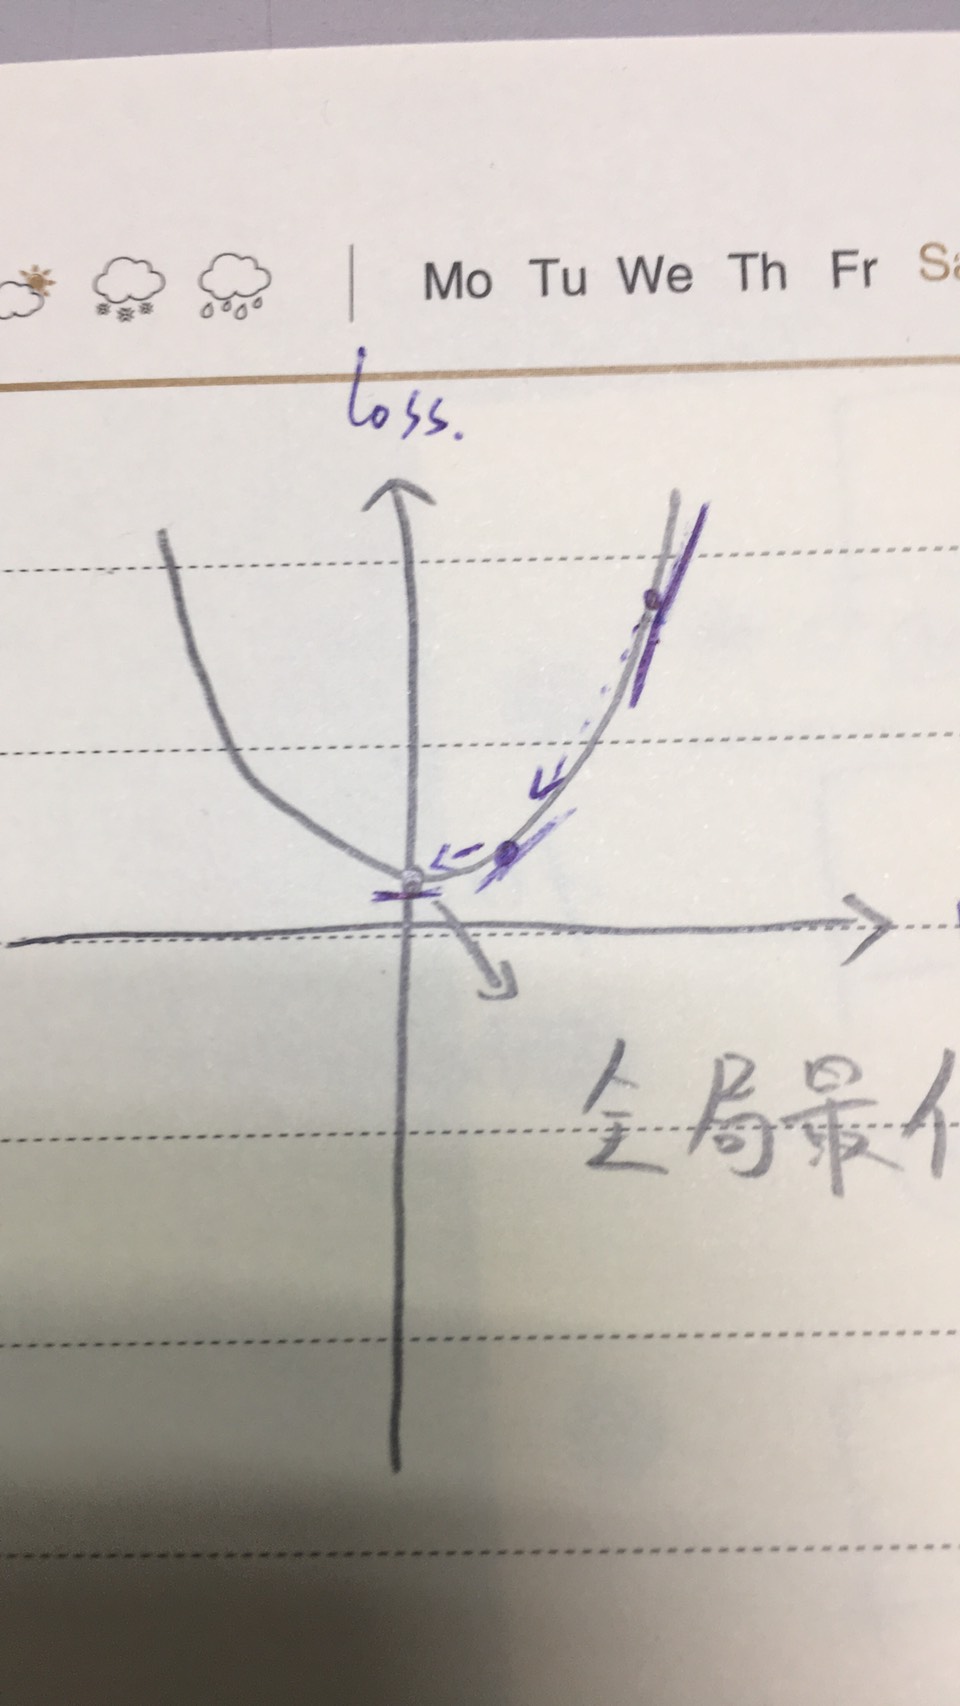 Mo Tu We Th Fr Sa
loss.
全局最